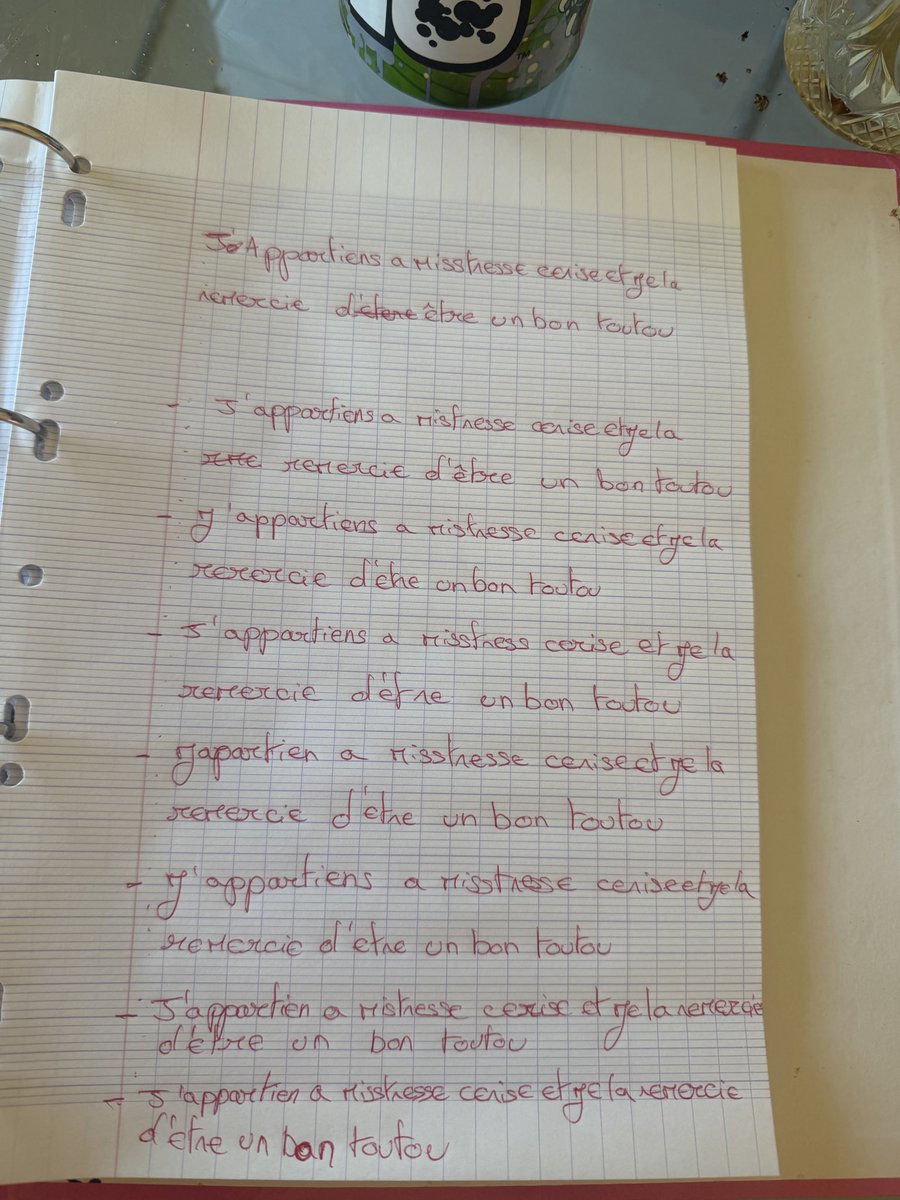 J'Appartiens a Misstresse cerise et je la
remercie d'être un bon toutou
- J'appartiens a Mistresse cerise et je la
remercie d'être un bon toutou
- J'appartiens a Mistresse cerise et je la
remercie d'être un bon toutou
- J'appartiens a Misstress cerise et je la
remercie d'être un bon toutou
- J'apartien a Misstresse cerise et je la
remercie d'être un bon toutou
- J'appartiens a Misstresse cerise et je la
remercie d'être un bon toutou
- J'appartien a Mistresse cerise et je la remercie
d'être un bon toutou
- J'appartien a Misstresse cerise et je la remercie
d'être un bon toutou